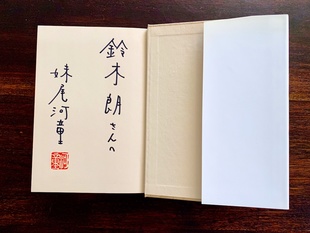 鈴木朗さんへ
妹尾河童